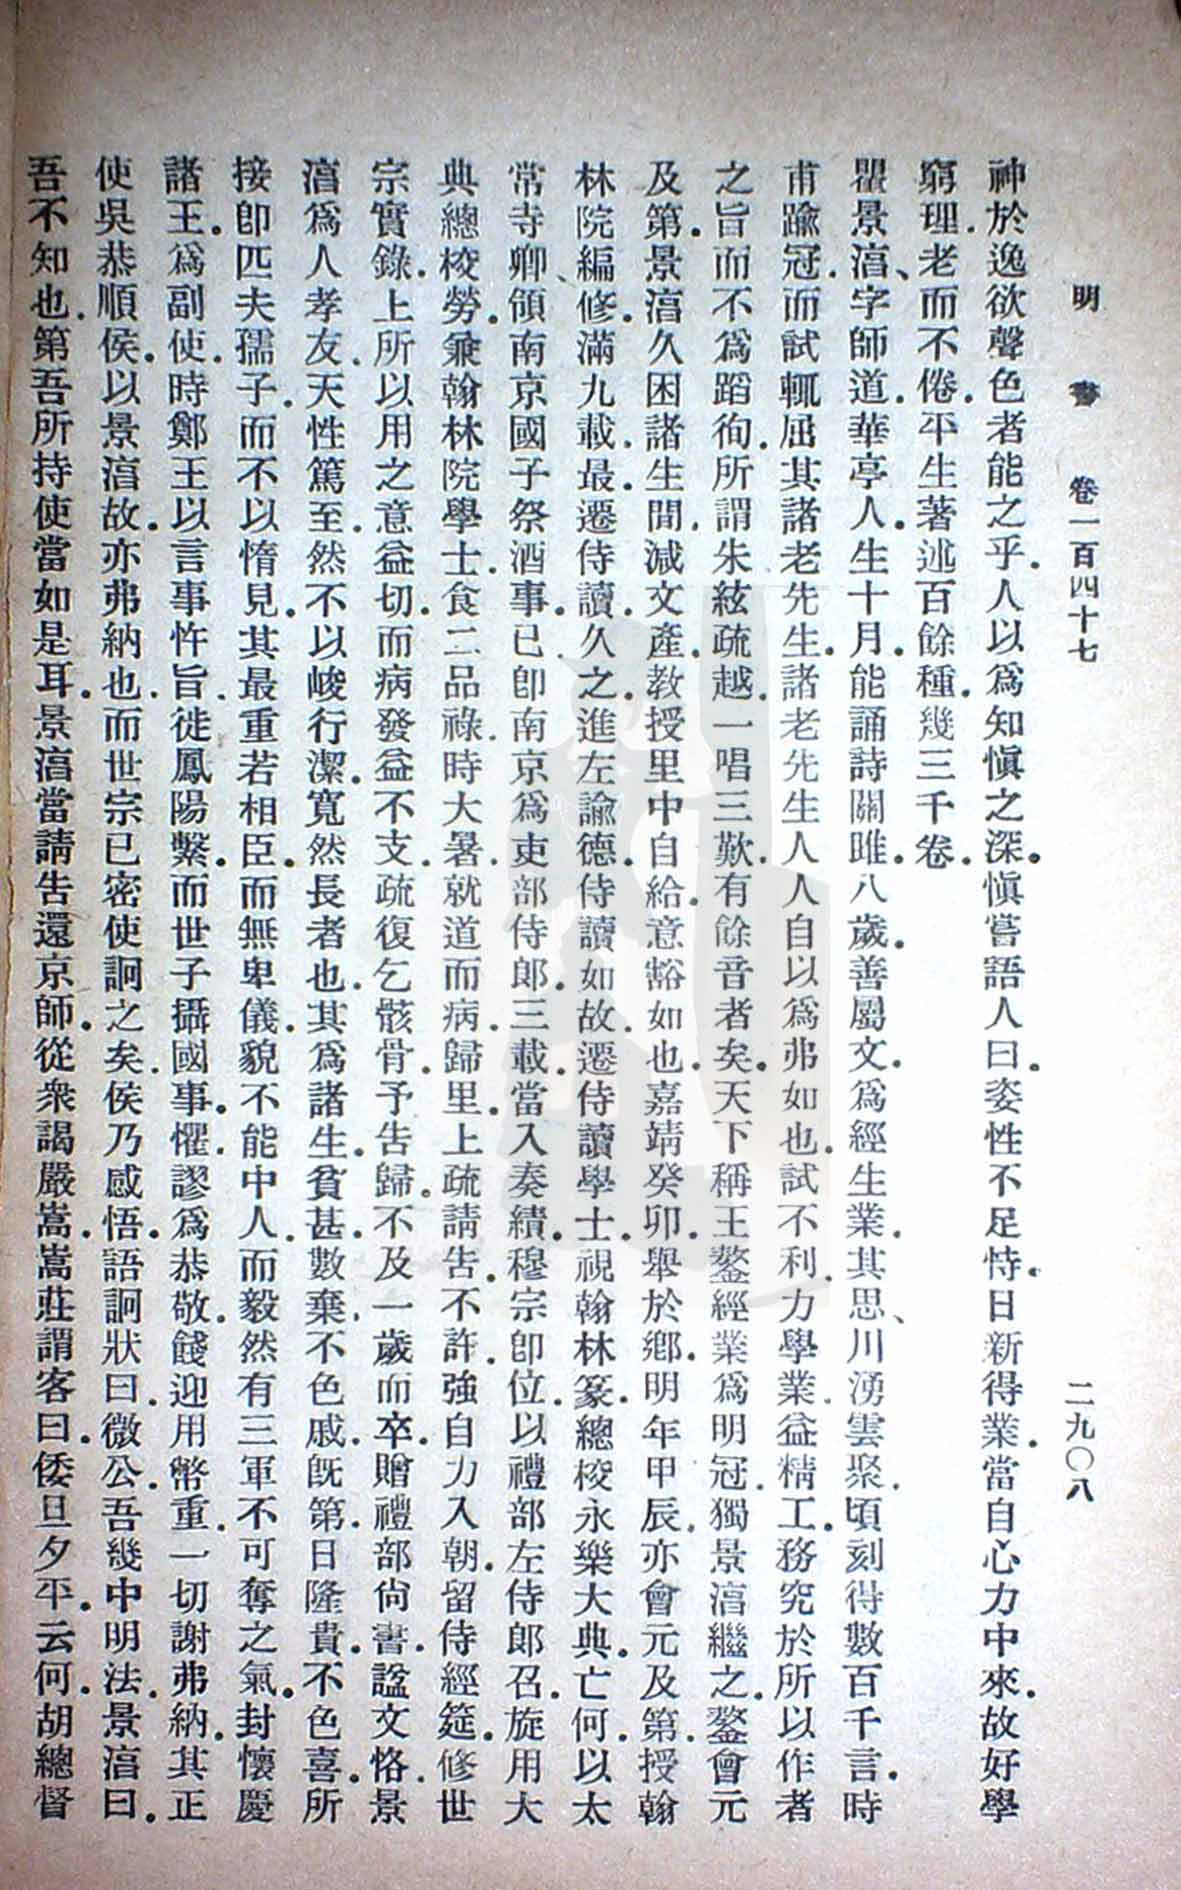 明書 卷一百四十七 二九〇八
神於逸欲聲色者能之乎.人以爲知愼之深.愼嘗語人曰.姿性不足恃.日新得業.當自心力中來.故好學
窮理.老而不倦.平生著述百餘種.幾三千卷.
瞿景淳、字師道.華亭人.生十月.能誦詩關雎.八歲.善屬文.爲經生業.其思、川湧雲聚.頃刻得數百千言.時
甫踰冠.而試輒屈其諸老先生.諸老先生人人自以爲弗如也.試不利.力學業.益精工.務究於所以作者
之旨而不爲蹈徇.所謂朱絃疏越.一唱三歎.有餘音者矣.天下稱王鏊經業爲明冠.獨景淳繼之.鏊會元
及第.景淳久困諸生間.減文產.教授里中自給.意豁如也.嘉靖癸卯.舉於鄉.明年甲辰.亦會元及第.授翰
林院編修.滿九載.最.遷侍讀.久之.進左諭德.侍讀如故.遷侍讀學士.視翰林篆.總校永樂大典.亡何.以太
常寺卿、領南京國子祭酒事.已卽南京爲吏部侍郎.三載.當入奏績.穆宗卽位.以禮部左侍郎召.旋用大
典總校勞.兼翰林院學士.食二品祿.時大暑.就道而病.歸里.上疏請告.不許.強自力入朝.留侍經筵.修世
宗實錄.上所以用之意益切.而病發益不支.疏復乞骸骨.予告歸.不及一歲而卒.贈禮部尙書.諡文恪.景
淳爲人孝友.天性篤至.然不以峻行潔.寬然長者也.其爲諸生.貧甚.數棄.不色戚.旣第.日隆貴.不色喜.所
接卽匹夫孺子.而不以惰見.其最重若相臣.而無卑儀.貌不能中人.而毅然有三軍不可奪之氣.封懷慶
諸王.爲副使.時鄭王以言事忤旨.徙鳳陽繫.而世子攝國事.懼.謬爲恭敬.餞迎用幣重.一切謝弗納.其正
使吳恭順侯.以景淳故.亦弗納也.而世宗已密使詗之矣.侯乃感悟.語詗狀曰.微公.吾幾中明法.景淳曰.
吾不知也.第吾所持使當如是耳.景淳當請告還京師.從衆謁嚴嵩.嵩莊謂客曰.倭旦夕平.云何.胡總督